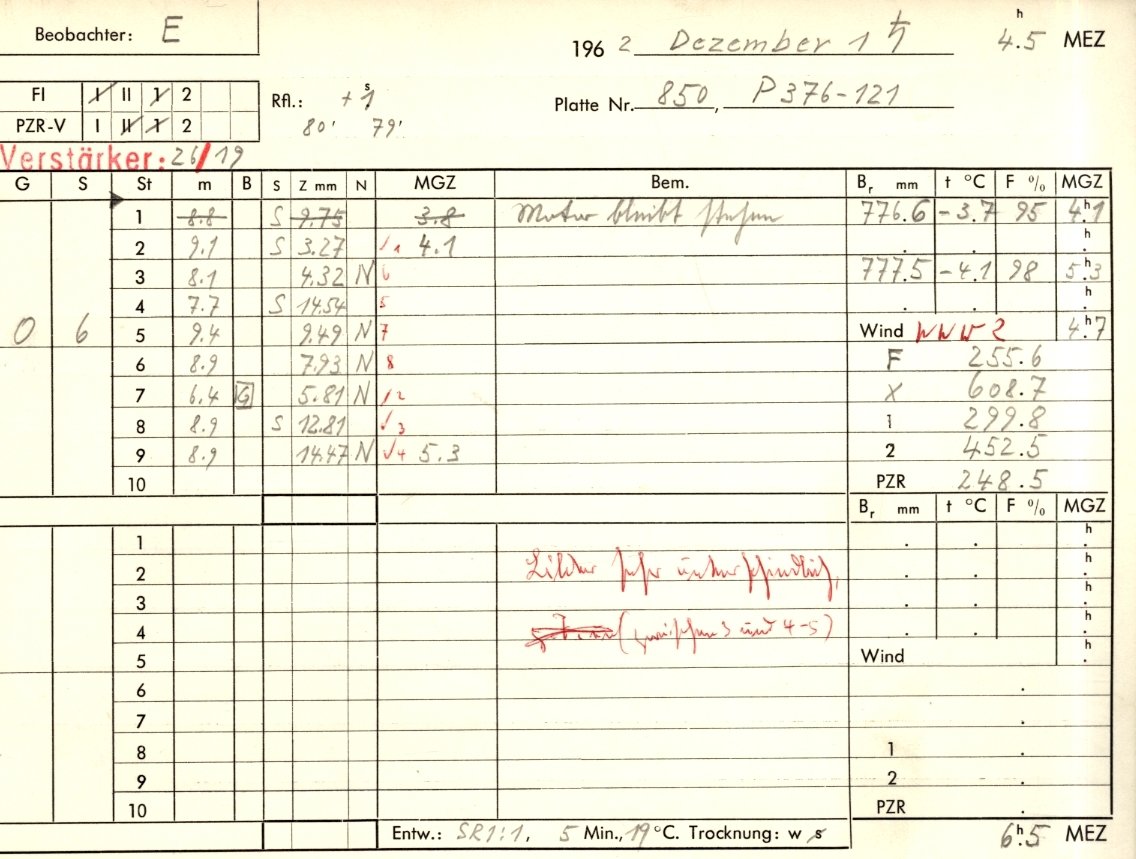 Beobachter: E
196 2 Dezember 1 ♄ 4.5 h MEZ
FI I II 1 2
PZR-V I II 1 2
Rfl.: +1 s
80' 79'
Platte Nr. 850, P 376-121
Verstärker: 26/19
G S St m B S Z mm N MGZ Bem. Br mm t °C F % MGZ
1 8.8 S 9.75 3.8 Motor bleibt stehen 776.6 -3.7 95 4h1
2 9.1 S 3.27 4.1 . . h.
3 8.1 4.32 N 6 777.5 -4.1 98 5h3
4 7.7 S 14.54 5 . . h.
0 6 5 9.4 9.49 N 7 Wind WNW 2 4h7
6 8.9 7.93 N 8 F 255.6
7 6.4 G 5.81 N 2 X 608.7
8 8.9 S 12.81 3 1 299.8
9 8.9 14.47 N 4 5.3 2 452.5
10 PZR 248.5
Br mm t °C F % MGZ
1 . . h.
2 Bilder sehr unterschiedlich, . . h.
3 . . h.
4 (zwischen 3 und 4-5) . . h.
5 Wind h.
6 .
7 .
8 1 .
9 2 .
10 PZR .
Entw.: SR1:1, 5 Min., 19 °C. Trocknung: w s 6h5 MEZ